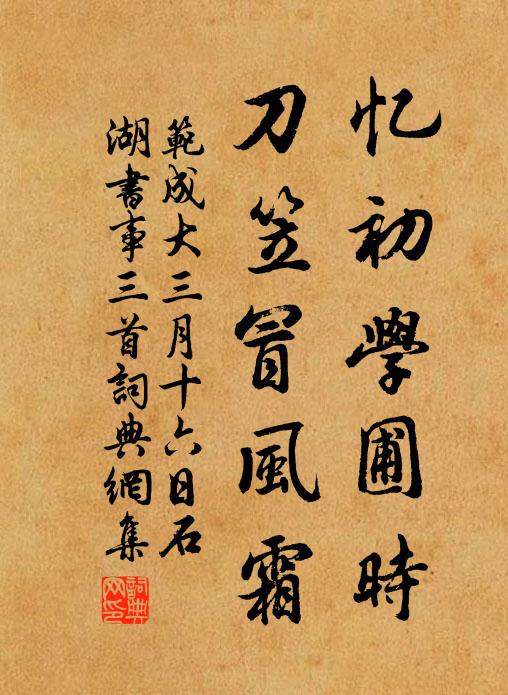 忆初學圃時
刀笠冒風霜
範成大三月十六日石
湖書事三首詞典網集
詞典
网印